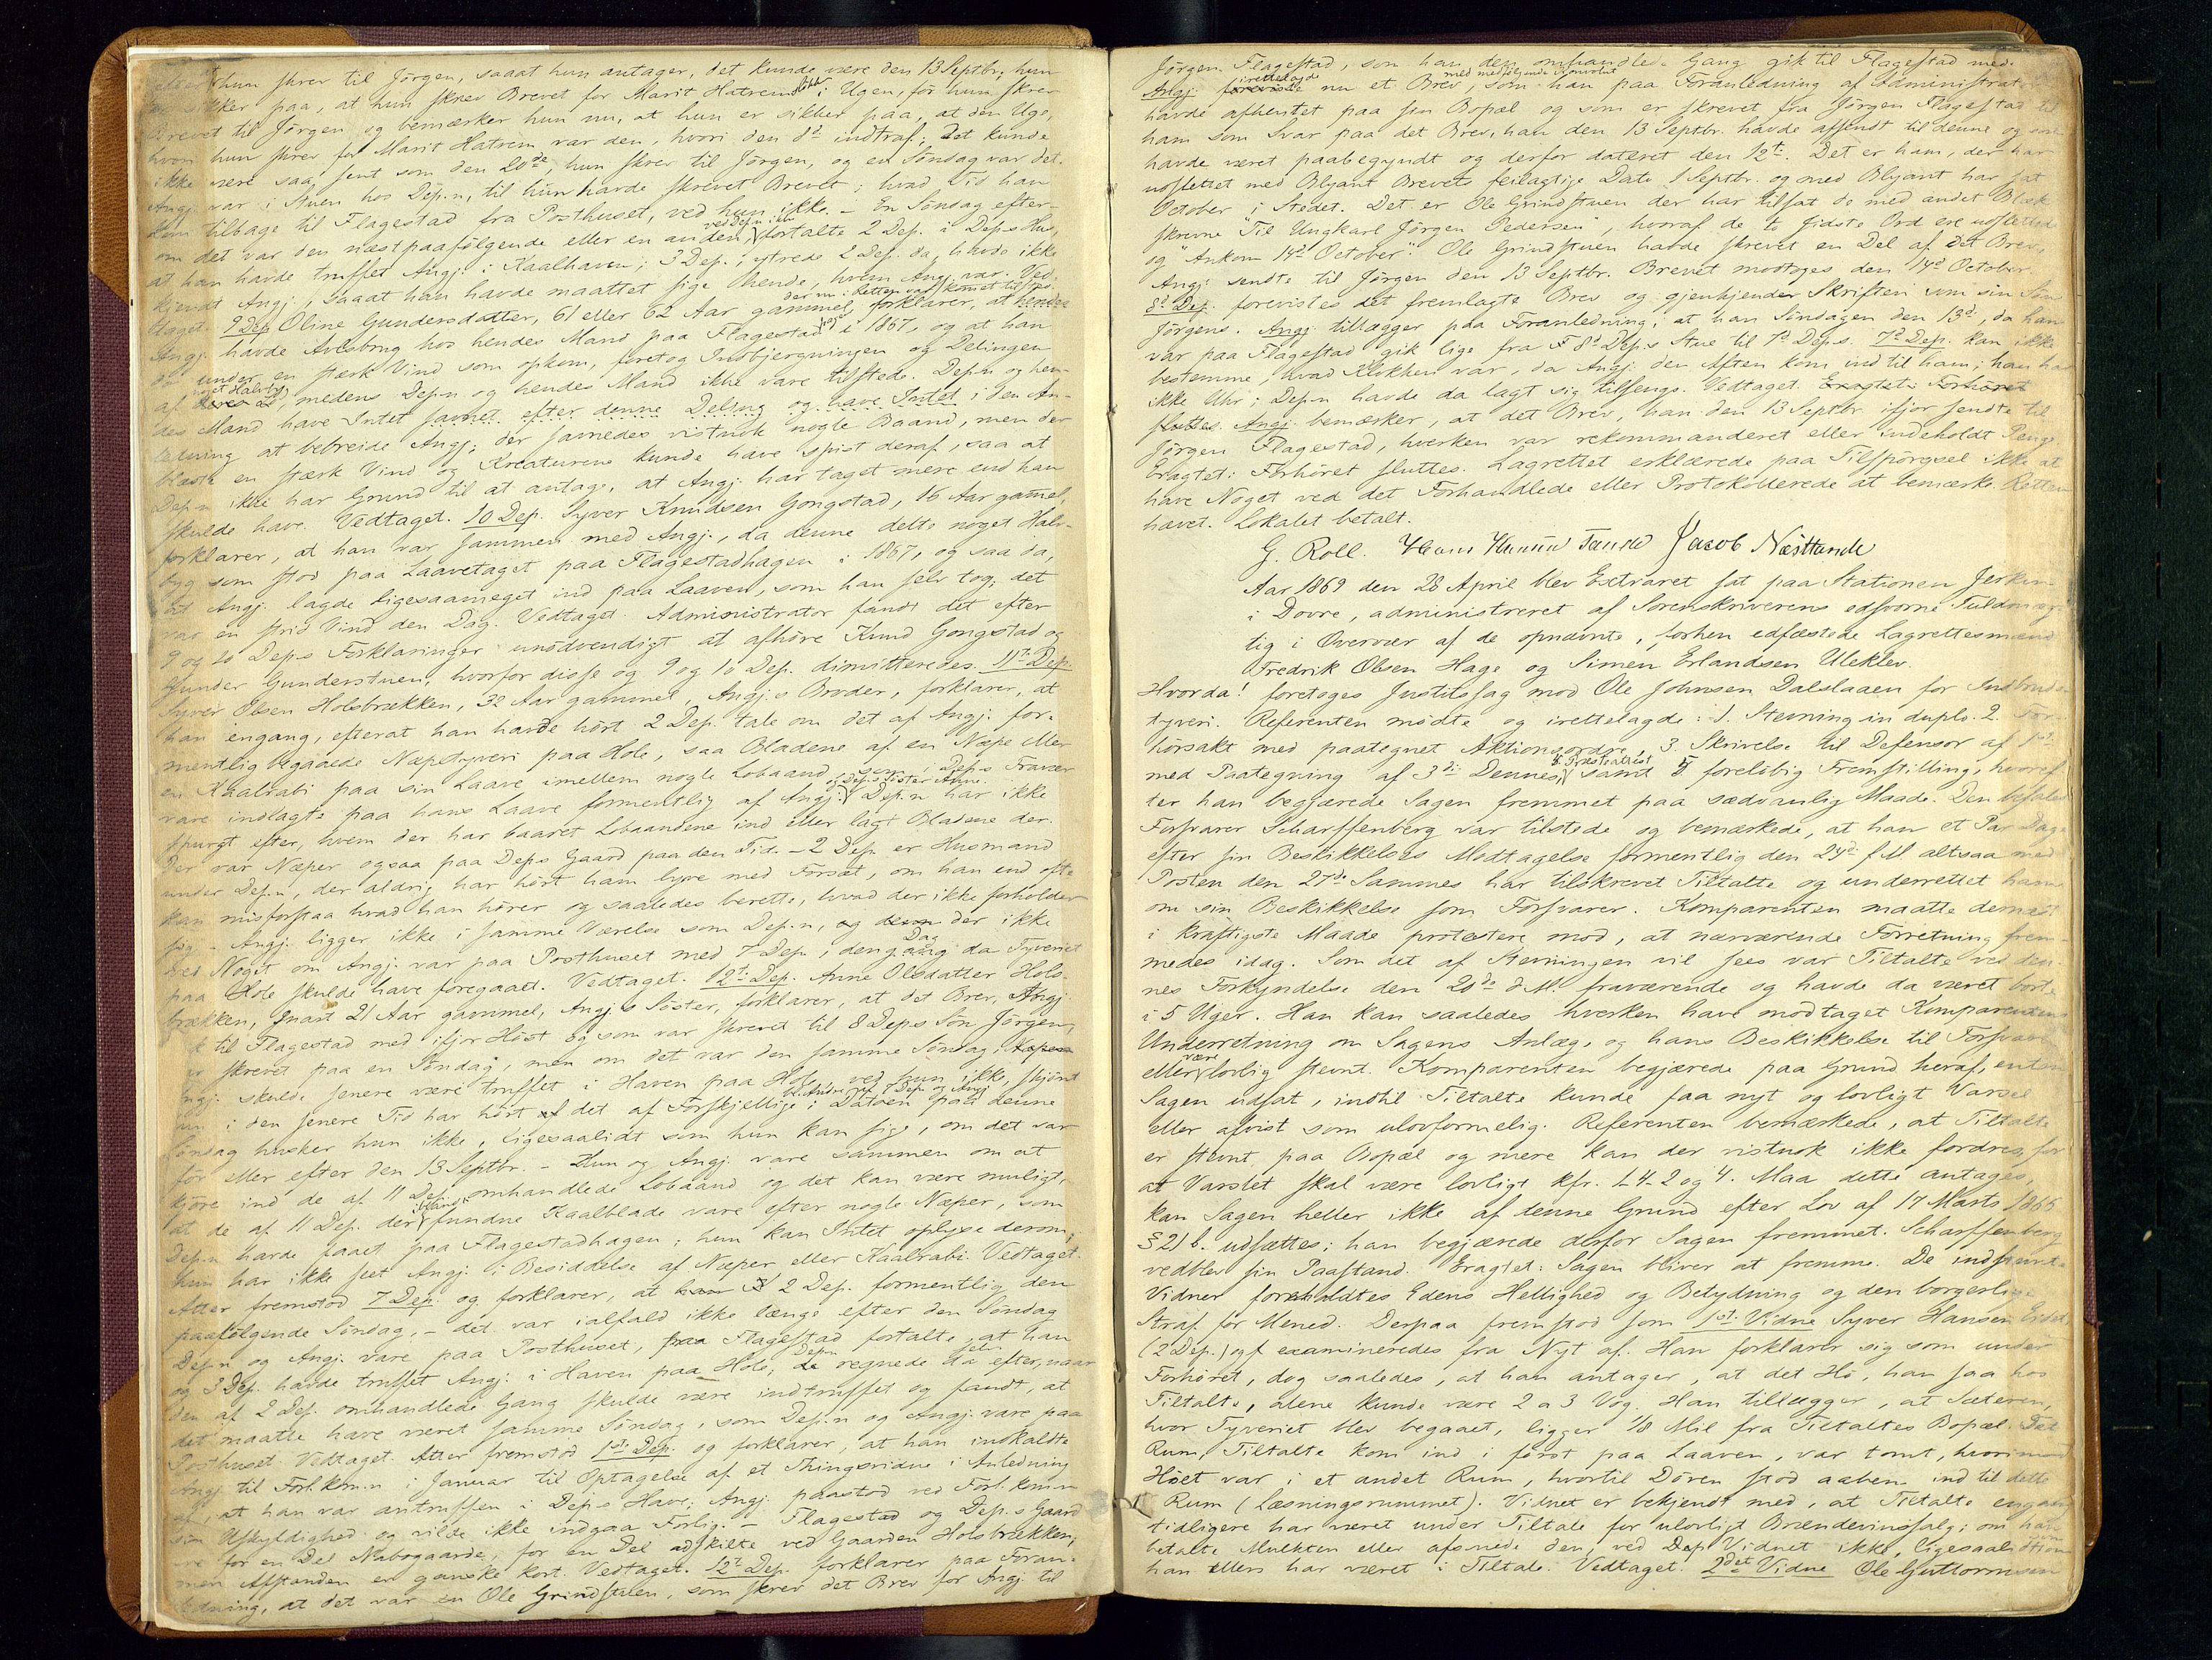 hun skrev til Jörgen, saaat hun antager, det kunde være den 13 Septbr; hun
sikker paa, at hun skrev Brevet for Marit Hatrem i Ugen, för hun skrev
Brevet til Jörgen og bemærker hun nu, at hun er sikker paa, at den Uge,
hvori hun skrev for Marit Hatrem var den, hvori den 8de indtraf; det kunde
ikke være saa sent som den 20de, hun skrev til Jörgen, og en Söndag var det.
Angj. var i Stuen hos Dep.n, til hun havde skrevet Brevet; hvad Tid han
kom tilbage til Flagestad fra Posthuset, ved hun ikke. – En Söndag efter-
om det var den næstpaafölgende eller en anden, ved Dep.n ikke fortalte 2 Dep. i Dep.s Hus,
at han havde truffet Angj. i Kaalhaven; 3 Dep., ytrede 2 Dep. da, havde ikke
kjendt Angj., saaat han havde maattet sige hende, hvem Angj. var. Ved-
taget. 9 Dep. Oline Gundersdatter, 61 eller 62 Aar gammel, forklarer, at
Angj. havde Avlsbrug hos hendes Mand paa Flagestad i 1867, og at han
da under en stærk Vind som opkom, foretog Indbjergningen og Delingen
af noget Halvbyg, medens Dep.n og hendes Mand ikke vare tilstede. Dep.n og hen-
des Mand have Intet savnet efter denne Deling og have Intet i den An-
ledning at bebreide Angj.; der savnedes vistnok nogle Baand, men der
blæste en stærk Vind og Kreaturene kunde have spist deraf, saa at
Dep.n ikke har Grund til at antage, at Angj. har taget mere end han
skulde have. Vedtaget. 10 Dep. Syver Knudsen Gongstad, 16 Aar gammel,
forklarer, at han var sammen med Angj., da denne delte noget Halv-
byg som stod paa Laavetaget paa Flagestadhagen i 1867, og saa da,
at Angj. lagde ligesaameget ind paa Laaven, som han selv tog; det
var en strid Vind den Dag. Vedtaget. Administrator fandt det efter
9 og 10 Dep.s Forklaringer unödvendigt at afhöre Knud Gongstad og
Gunder Gunderstuen, hvorfor disse og 9 og 10 Dep. dimitteredes. 11te Dep.
Syver Olsen Holsbrækken, 32 Aar gammel, Angj.s Broder, forklarer, at
han engang, efterat han havde hört 2 Dep. tale om det af Angj. for-
mentlig begaaede Næpetyveri paa Hole, saa Bladene af en Næpe eller
en Kaalrabi paa sin Laave imellem nogle Lobaand som i Dep.s Fravær
vare indlagte paa hans Laave formentlig af Angj. og Dep.s Söster Anne. Dep.n har ikke
spurgt efter, hvem der har baaret Lobaandene ind eller lagt Bladene der.
Der var Næper ogsaa paa Dep.s Gaard paa den Tid. – 2 Dep. er Husmand
under Dep.n, der aldrig har hört ham lyve med Forsæt, om han end ofte
kan misforstaa hvad han hörer og saaledes berette, hvad der ikke forholder
sig. – Angj. ligger ikke i samme Værelse som Dep.n, og der ikke
ved Noget om Angj. var paa Posthuset med 7 Dep., den Dag da Tyveriet
paa Hole skulde have foregaaet. Vedtaget. 12te Dep. Anne Olsdatter Hols-
brækken, snart 21 Aar gammel, Angj.s Söster, forklarer, at det Brev, Angj.
til Flagestad med ifjor Höst og som var skrevet til 8 Dep.s Sön Jörgen,
skrevet paa en Söndag, men om det var den samme Söndag,
Angj. skulde senere være truffet i Haven paa Hole, ved hun ikke, skjönt
hun i den senere Tid har hört det af Forskjellige; Datoen paa denne
Söndag husker hun ikke, ligesaalidt som hun kan sige, om det var
för eller efter den 13 Septbr. – Hun og Angj. vare sammen om at
kjöre ind de af 11 Dep. omhandlede Lobaand og det kan være muligt,
at de af 11 Dep. deri fundne Kaalblade vare efter nogle Næper, som
Dep.n havde faaet paa Flagestadhagen; hun kan Intet oplyse derom;
hun har ikke seet Angj. i Besiddelse af Næper eller Kaalrabi. Vedtaget.
Atter fremstod 7 Dep. og forklarer, at 2 Dep. formentlig den
paafölgende Söndag, – det var ialfald ikke længe efter den Söndag
Dep.n og Angj. vare paa Posthuset, paa Flagestad fortalte, at han
og 3 Dep. havde truffet Angj. i Haven paa Hole; Dep.n regnede selv efter, naar
den af 2 Dep. omhandlede Gang skulde være indtruffet og fandt, at
det maatte have været samme Söndag, som Dep.n og Angj. vare paa
Posthuset. Vedtaget. Atter fremstod 1ste Dep. og forklarer, at han indkaldte
Angj. til Forl.kom.n i Januar til Optagelse af et Thingsvidne i Anledning
af, at han var antruffen i Dep.s Have; Angj. paastod ved Forl.kom.n
sin Uskyldighed og vilde ikke indgaa Forlig. – Flagestad og Dep.s Gaard
ere for en Del Nabogaarde, for en Del adskilte ved Gaarden Holsbrækken,
men Afstanden er ganske kort. Vedtaget. 12te Dep. forklarer paa Foran-
ledning, at det var en Ole Grindstuen, som skrev det Brev for Angj. til
Jörgen Flagestad, som han den omhandlede Gang gik til Flagestad med.
Angj. irettelagde nu et Brev, som han paa Foranledning af Administrator
havde afhentet paa sin Bopæl og som er skrevet fra Jörgen Flagestad til
ham som Svar paa det Brev, han den 13 Septbr. havde afsendt til denne og som
havde været paabegyndt og derfor dateret den 12te. Det er ham, der har
udslettet med Blyant Brevets feilagtige Dato 1 Septbr. og med Blyant har sat
October i Stedet. Det er Ole Grindstuen der har tilsat de med andet Blæk
skrevne "Til Ungkarl Jörgen Pedersen", hvoraf de to sidste Ord ere udslettede
og "Ankom 14de October". Ole Grindstuen havde skrevet en Del af det Brev,
Angj. sendte til Jörgen den 13 Septbr. Brevet modtoges den 14de October.
8de Dep. forevistes det fremlagte Brev og gjenkjender Skriften som sin Söns
Jörgens. Angj. tillægger paa Foranledning, at han Söndagen den 13de, da han
var paa Flagestad gik lige fra 8de Dep.s Stue til 7de Dep.s. 7de Dep. kan ikke
bestemme, hvad Klokken var, da Angj. den Aften kom ind til ham; han har
ikke Uhr; Dep.n havde da lagt sig tilsengs. Vedtaget. Eragtet: Forhöret
sluttes. Angj. bemærker, at det Brev, han den 13 Septbr. ifjor sendte til
Jörgen Flagestad, hverken var rekommanderet eller indeholdt Penge.
Eragtet: Forhöret sluttes. Lagrettet erklærede paa Tilspörgsel ikke at
have Noget ved det Forhandlede eller Protokollerede at bemærke. Retten
hævet. Lokalet betalt.
G. Roll. Hans Jacob Næsttande
Aar 1869 den 28 April blev Extraret sat paa Stationen Jerkin
i Dovre, administreret af Sorenskriverens edsvorne Fuldmæg-
tig i Overvær af de opnævnte, forhen edfæstede Lagrettesmænd
Fredrik Olsen Hage og Simen Erlandsen Uleklev.
Hvorda! foretoges Justitssag mod Ole Johnsen Dalslaaen for Indbruds-
tyveri. Referenten mödte og irettelagde: 1. Stevning in duplo. 2. For-
hörsakt med paategnet Aktionsordre, 3. Skrivelse til Defensor af 1ste
med Paategning af 3die Dennes, 4. Præsteattest samt 5 foreløbig Fremstilling, hvoref-
ter han begjærede Sagen fremmet paa sædvanlig Maade. Den befalede
Forsvarer Scharffenberg var tilstede og bemærkede, at han et Par Dage
efter sin Beskikkelses Modtagelse formentlig den 24de f. M. altsaa med
Posten den 27de Sammes har tilskrevet Tiltalte og underrettet ham
om sin Beskikkelse som Forsvarer. Komparenten maatte dernæst
i kraftigste Maade protestere mod, at nærværende Forretning frem-
medes idag. Som det af Stevningen vil sees var Tiltalte ved den-
nes Forkyndelse den 20de d. M. fraværende og havde da været borte
i 5 Uger. Han kan saaledes hverken have modtaget Komparentens
Underretning om Sagens Anlæg, og hans Beskikkelse til Forsvarer
eller være lovlig stevnt. Komparenten begjærede paa Grund heraf, enten
Sagen udsat, indtil Tiltalte kunde faa nyt og lovligt Varsel
eller afvist som ulovformelig. Referenten bemærkede, at Tiltalte
er stevnt paa Bopæl og mere kan der vistnok ikke fordres for
at Varslet skal være lovligt kfr. L 4. 2 og 4. Maa dette antages,
kan Sagen heller ikke af denne Grund efter Lov af 17 Marts 1866
§ 21 b. udsættes; han begjærede derfor Sagen fremmet. Scharffenberg
vedblev sin Paastand. Eragtet: Sagen bliver at fremme. De indstevnte
Vidner foreholdtes Edens Hellighed og Betydning og den borgerlige
Straf for Mened. Derpaa fremstod som 1ste Vidne Syver Hansen
(2 Dep.) og examineredes fra Nyt af. Han forklarer sig som under
Forhöret, dog saaledes, at han antager, at det Hö, han saa hos
Tiltalte, alene kunde være 2 a 3 Vog. Han tillægger, at Sæteren,
hvor Tyveriet blev begaaet, ligger 1/8 Mil fra Tiltaltes Bopæl. Det
Rum, Tiltalte kom ind i först paa Laaven, var tomt, hvorimod
Höet var i et andet Rum, hvortil Dören stod aaben ind til dette
Rum (Læsningsrummet). Vidnet er bekjendt med, at Tiltalte engang
tidligere har været under Tiltale for ulovligt Brændevinssalg; om han
betalte Mulkten eller afsonede den, ved Vidnet ikke, ligesaalidt om
han ellers har været i Tiltale. Vedtaget. 2det Vidne Ole Guttormsen